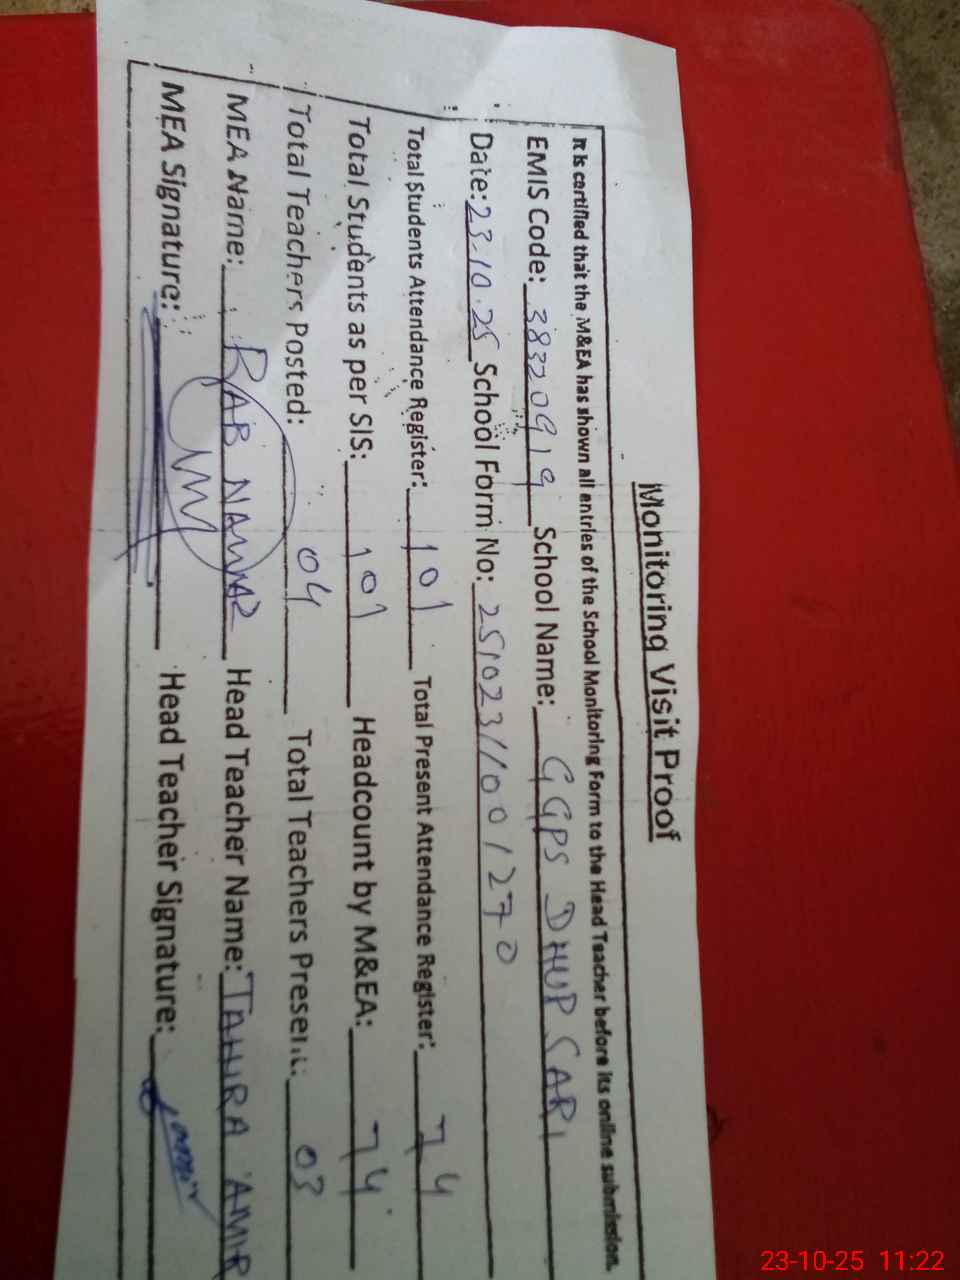 Monitoring Visit Proof
It is certified that the M&EA has shown all entries of the School Monitoring Form to the Head Teacher before its online submission.
EMIS Code: 38320919 School Name: GGPS DHUP SARI
Date: 23.10.25 School Form No: 25102311001270
Total Students Attendance Register: 101 Total Present Attendance Register: 74
Total Students as per SIS: 101 Headcount by M&EA: 74
Total Teachers Posted: 04 Total Teachers Present: 03
MEA Name: RAB NAWAZ Head Teacher Name: TAHIRA AMIR
MEA Signature: Head Teacher Signature:
23-10-25 11:22